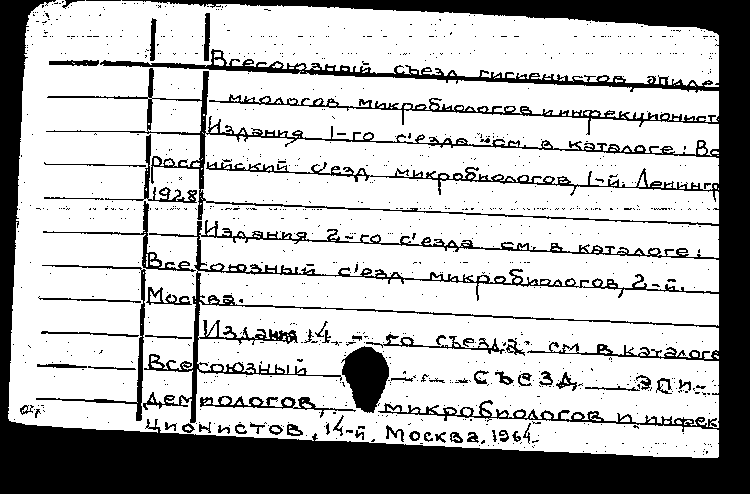 Всесоюзный съезд гигиенистов, эпиде-
миологов, микробиологов и инфекционисто
Издания 1-го с'езда см. в каталоге: Вс
российский с'езд микробиологов, 1-й. Ленингр
1928
Издания 2-го с'езда см. в каталоге:
Всесоюзный с'езд микробиологов, 2-й.
Москва.
Издания 14-го съезда см. в каталоге
Всесоюзный съезд эпи-
демиологов, микробиологов и инфек-
ционистов, 14-й, Москва, 1964.